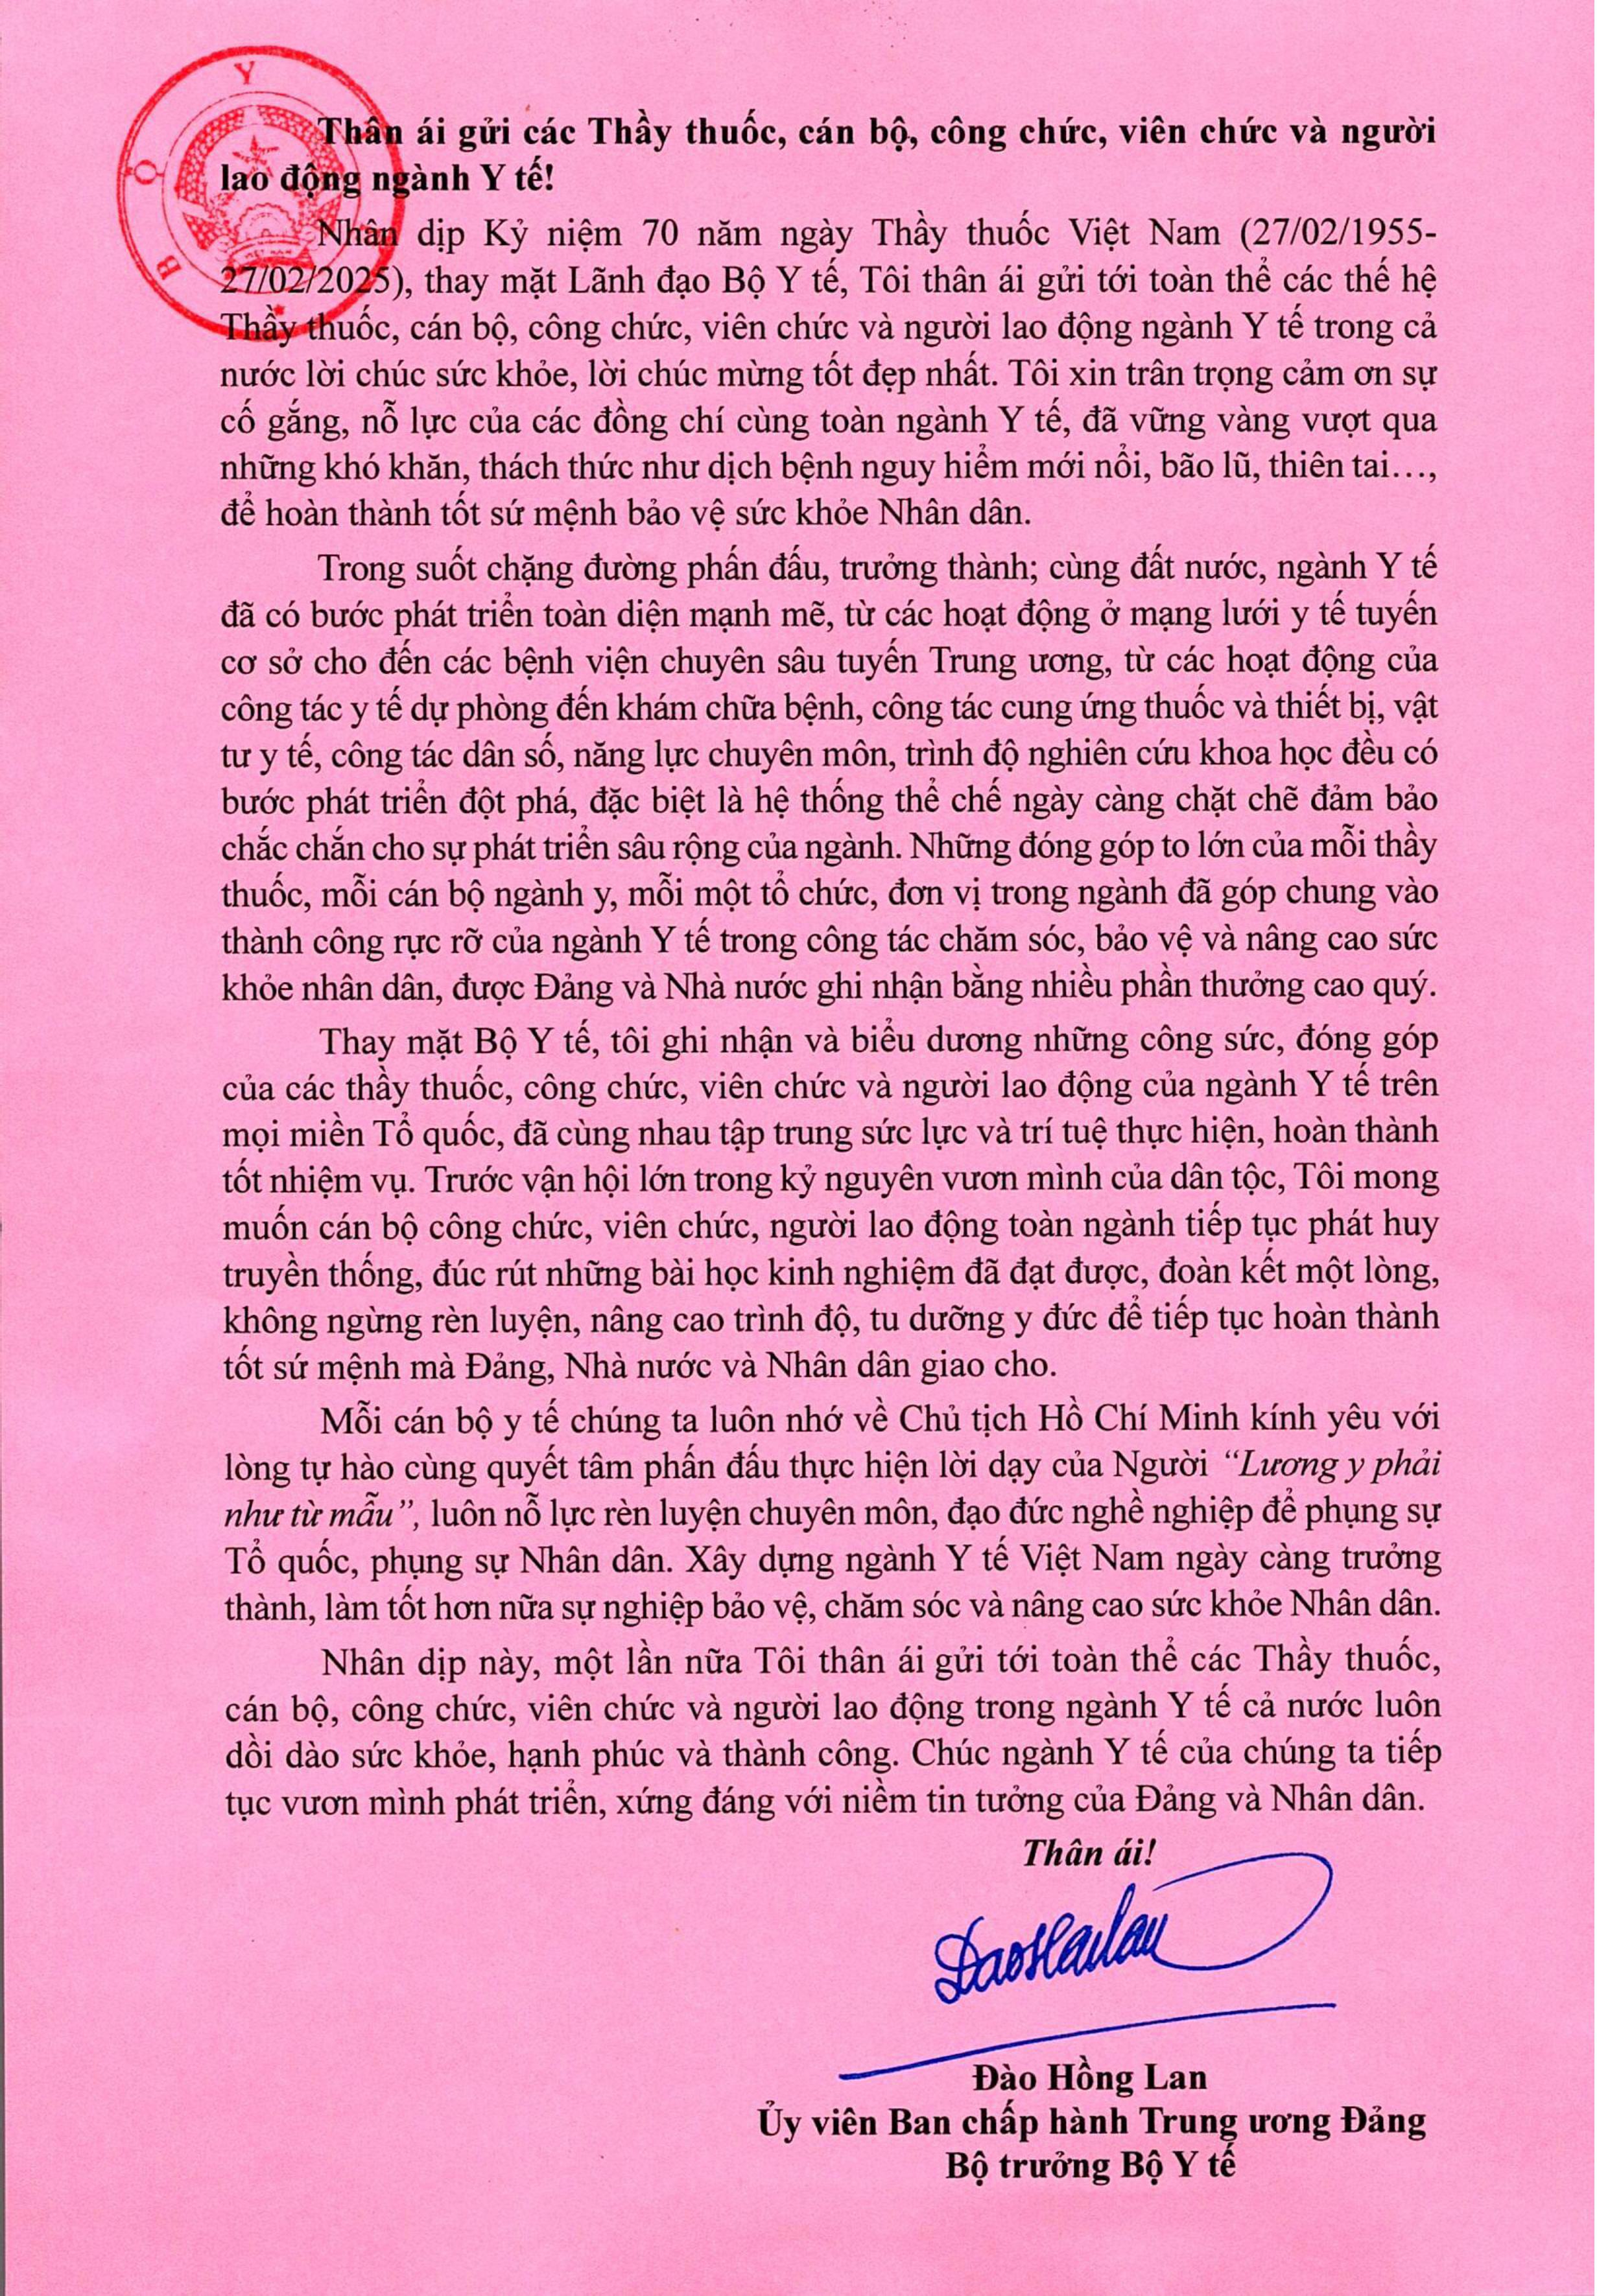 BỘ Y
VIỆT NAM
Thân ái gửi các Thầy thuốc, cán bộ, công chức, viên chức và người
lao động ngành Y tế!
Nhân dịp Kỷ niệm 70 năm ngày Thầy thuốc Việt Nam (27/02/1955-
27/02/2025), thay mặt Lãnh đạo Bộ Y tế, Tôi thân ái gửi tới toàn thể các thế hệ
Thầy thuốc, cán bộ, công chức, viên chức và người lao động ngành Y tế trong cả
nước lời chúc sức khỏe, lời chúc mừng tốt đẹp nhất. Tôi xin trân trọng cảm ơn sự
cố gắng, nỗ lực của các đồng chí cùng toàn ngành Y tế, đã vững vàng vượt qua
những khó khăn, thách thức như dịch bệnh nguy hiểm mới nổi, bão lũ, thiên tai…,
để hoàn thành tốt sứ mệnh bảo vệ sức khỏe Nhân dân.
Trong suốt chặng đường phấn đấu, trưởng thành; cùng đất nước, ngành Y tế
đã có bước phát triển toàn diện mạnh mẽ, từ các hoạt động ở mạng lưới y tế tuyến
cơ sở cho đến các bệnh viện chuyên sâu tuyến Trung ương, từ các hoạt động của
công tác y tế dự phòng đến khám chữa bệnh, công tác cung ứng thuốc và thiết bị, vật
tư y tế, công tác dân số, năng lực chuyên môn, trình độ nghiên cứu khoa học đều có
bước phát triển đột phá, đặc biệt là hệ thống thể chế ngày càng chặt chẽ đảm bảo
chắc chắn cho sự phát triển sâu rộng của ngành. Những đóng góp to lớn của mỗi thầy
thuốc, mỗi cán bộ ngành y, mỗi một tổ chức, đơn vị trong ngành đã góp chung vào
thành công rực rỡ của ngành Y tế trong công tác chăm sóc, bảo vệ và nâng cao sức
khỏe nhân dân, được Đảng và Nhà nước ghi nhận bằng nhiều phần thưởng cao quý.
Thay mặt Bộ Y tế, tôi ghi nhận và biểu dương những công sức, đóng góp
của các thầy thuốc, công chức, viên chức và người lao động của ngành Y tế trên
mọi miền Tổ quốc, đã cùng nhau tập trung sức lực và trí tuệ thực hiện, hoàn thành
tốt nhiệm vụ. Trước vận hội lớn trong kỷ nguyên vươn mình của dân tộc, Tôi mong
muốn cán bộ công chức, viên chức, người lao động toàn ngành tiếp tục phát huy
truyền thống, đúc rút những bài học kinh nghiệm đã đạt được, đoàn kết một lòng,
không ngừng rèn luyện, nâng cao trình độ, tu dưỡng y đức để tiếp tục hoàn thành
tốt sứ mệnh mà Đảng, Nhà nước và Nhân dân giao cho.
Mỗi cán bộ y tế chúng ta luôn nhớ về Chủ tịch Hồ Chí Minh kính yêu với
lòng tự hào cùng quyết tâm phấn đấu thực hiện lời dạy của Người “Lương y phải
như từ mẫu”, luôn nỗ lực rèn luyện chuyên môn, đạo đức nghề nghiệp để phụng sự
Tổ quốc, phụng sự Nhân dân. Xây dựng ngành Y tế Việt Nam ngày càng trưởng
thành, làm tốt hơn nữa sự nghiệp bảo vệ, chăm sóc và nâng cao sức khỏe Nhân dân.
Nhân dịp này, một lần nữa Tôi thân ái gửi tới toàn thể các Thầy thuốc,
cán bộ, công chức, viên chức và người lao động trong ngành Y tế cả nước luôn
dồi dào sức khỏe, hạnh phúc và thành công. Chúc ngành Y tế của chúng ta tiếp
tục vươn mình phát triển, xứng đáng với niềm tin tưởng của Đảng và Nhân dân.
Thân ái!
Đào Hồng Lan
Ủy viên Ban chấp hành Trung ương Đảng
Bộ trưởng Bộ Y tế